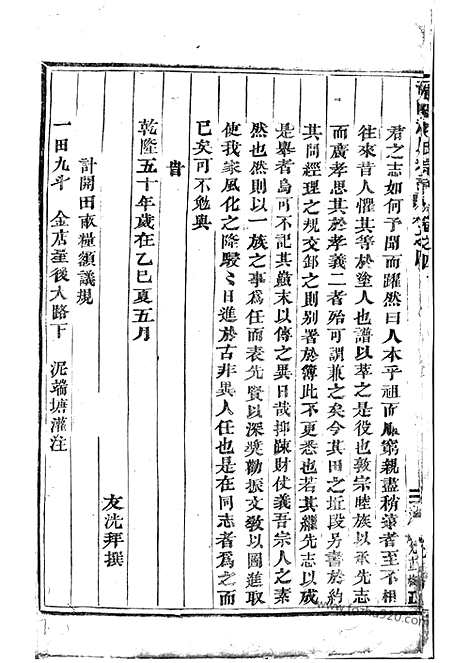 君之志如何予聞而躍然曰人本乎祖而服窮親盡稍遠者至不相
往來昔人懼其等於塗人也譜以萃之是役也敦宗睦族以承先志
而廣孝思其於孝義二者殆可謂兼之矣今其田之坵段另書於約
其間經理之規交卸之則别署於簿此不更悉也若其繼先志以成
是舉者烏可不記其巔末以傳之異日哉抑疎財仗義吾宗人之素
然也然以一族之事為任而表先賢以深奬勸振文教以圖進取
使我家風化之隆駸〻日進於古非異人任也是在同志者為之而
已矣可不勉與
旹
乾隆五十年歲在乙巳夏五月
友沈拜撰
計開田畝糧額議規
一田九斗　金店壟後大路下　泥端塘灌注
www.fozhu920.com